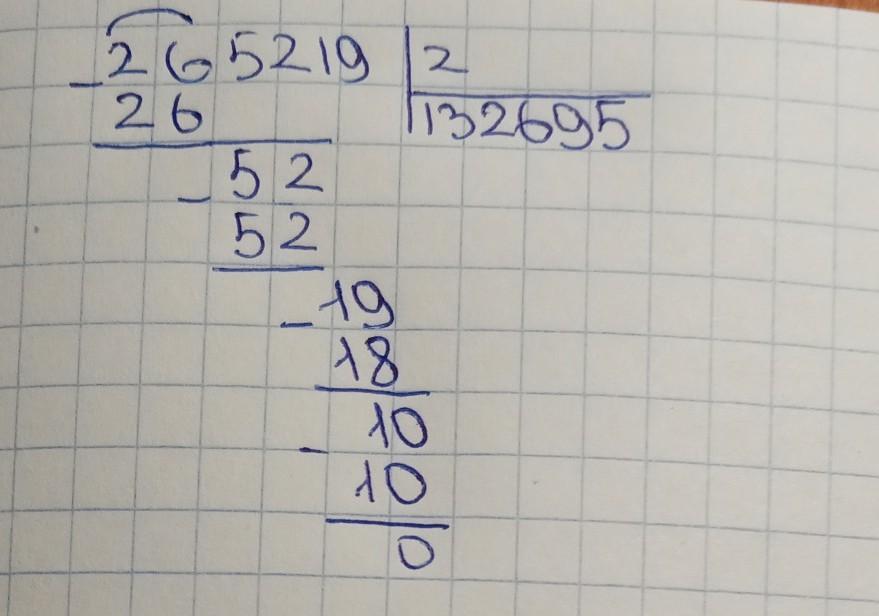 265219 2
26 132695
52
52
19
18
10
10
0